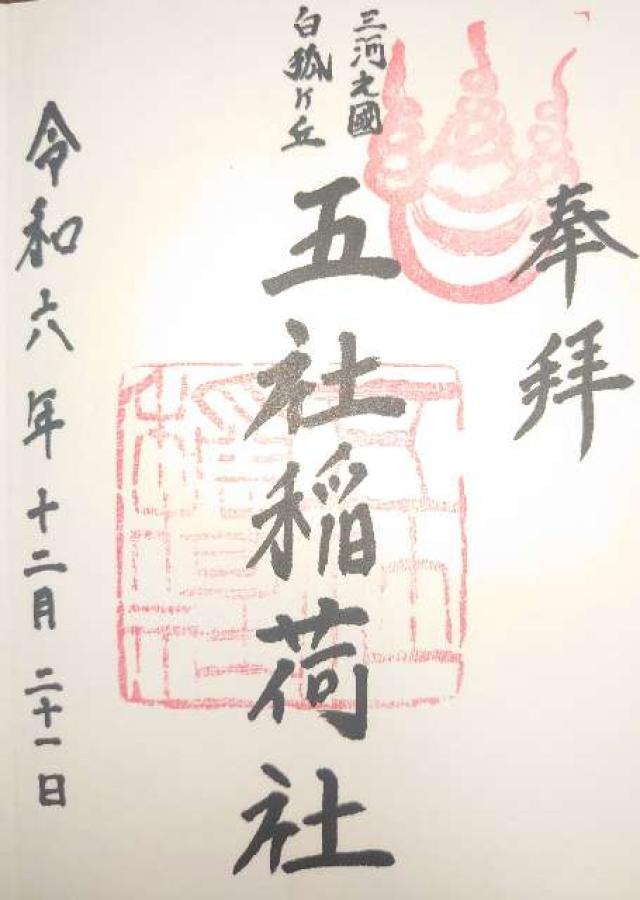 奉拝
三河之國
白狐ヶ丘
五社稲荷社
令和六年十二月二十一日